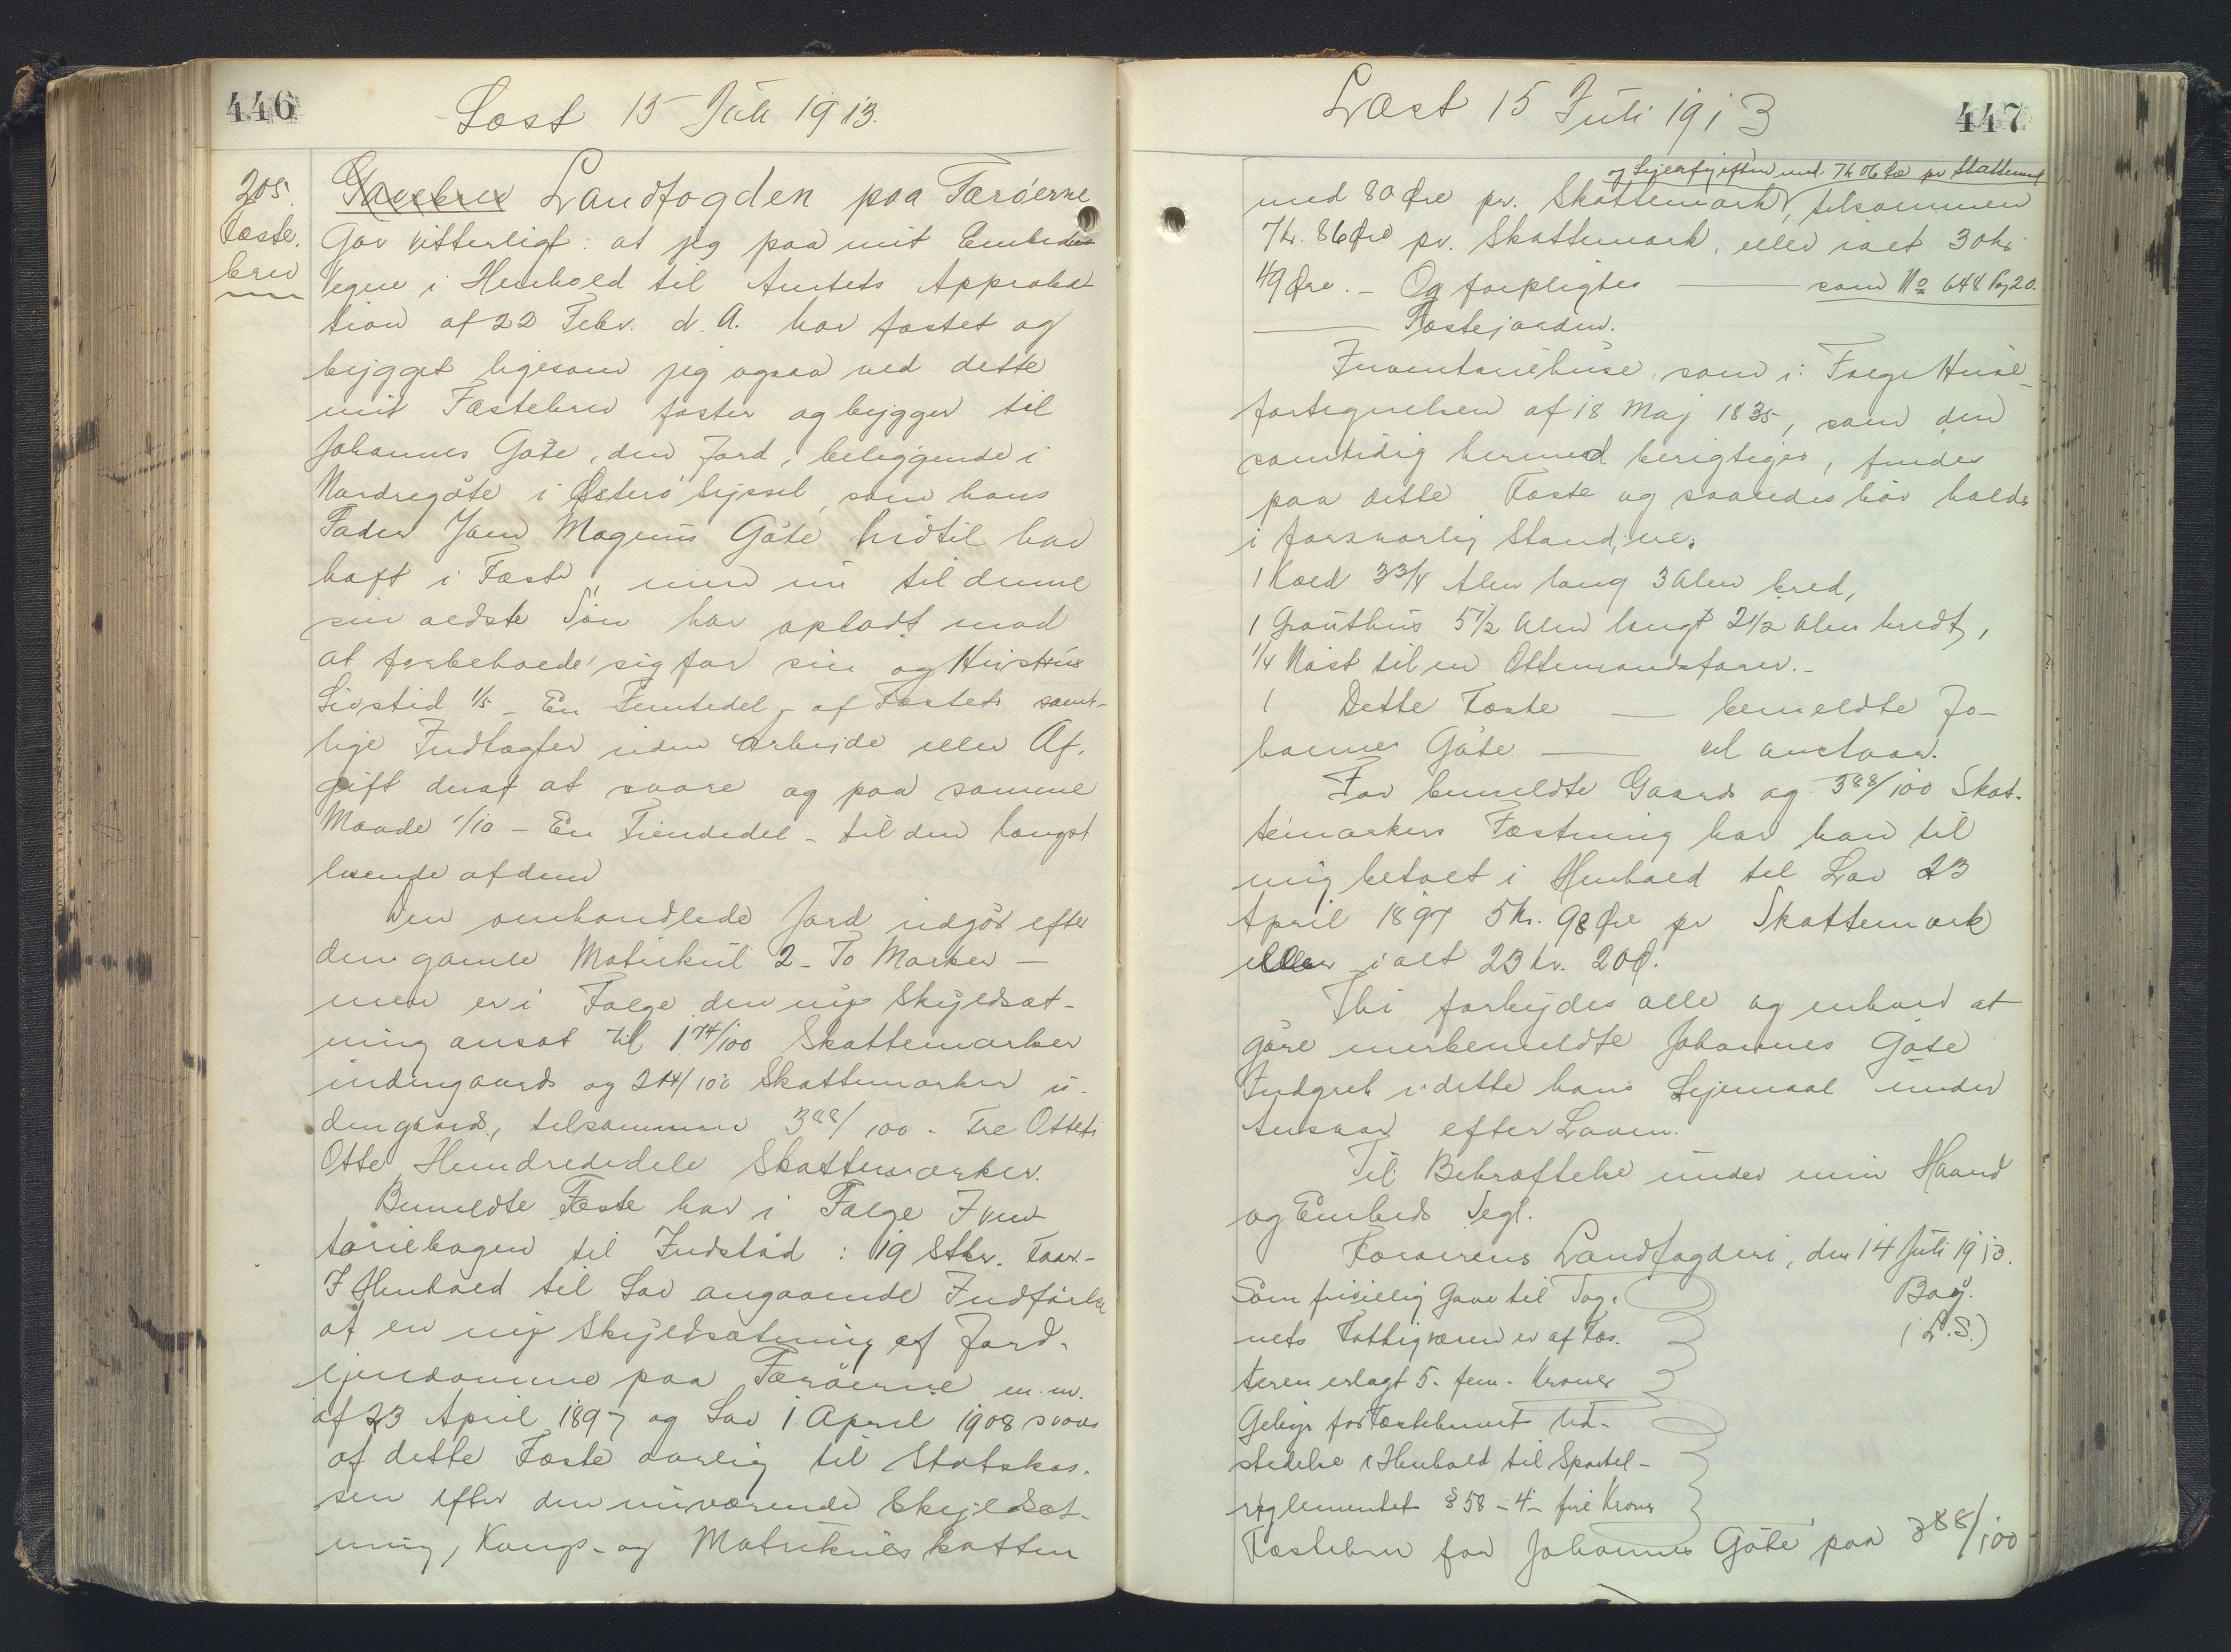 446
Læst 15 Juli 1913.
205.
Fæste-
brev
Landfogden paa Færöerne
Gør vitterligt: at jeg paa mit Embedes
Vegne i Henhold til Amtets Approba-
tion af 22 Febr. d. A. har fæstet og
bygget ligesom jeg ogsaa ved dette
mit Fæstebrev fæster og bygger til
Johannes Göte, den Jord, beliggende i
Nordregöte i Österö Syssel, som hans
Fader Joen Magnus Göte hidtil har
haft i Fæste, men nu til denne
sin ældste Sön har opladt mod
at forbeholde sig for sin og Hustrus
Livstid 1/5 - En Femtedel - af Fæstets samt-
lige Indtægter uden Arbejde eller Af-
gift deraf at svare og paa samme
Maade 1/10 - En Tiendedel - til den længst
levende af dem
Den omhandlede Jord udgör efter
den gamle Matrikul 2 - To Marker -
men er i Følge den nye Skyldsæt-
ning ansat til 1 74/100 Skattemarker
indengaards og 2 14/100 Skattemarker u-
dengaards, tilsammen 3 88/100 - Tre Otteti
Otte Hundrededele Skattemarker.
Bemeldte Fæste har i Følge Inven-
tariebogen til Indstöd: 19 Stkr. Faar.-
I Henhold til Lov angaaende Indförelse
af en ny Skyldsætning af Jord-
ejendomme paa Færöerne m.m.
af 23 April 1897 og Lov 1 April 1908 svares
af dette Fæste aarlig til Statskas-
sen efter den nuværende Skyldsæt-
ning, Konge- og Matrikulskatten
Læst 15 Juli 1913
447
og Lejeafgiften med 7 Kr 06 Øre pr Skattemark
med 80 Øre pr. Skattemark, tilsammen
7 Kr. 86 Øre pr. Skattemark, eller ialt 30 Kr.
49 Øre. - Og forpligtes — som No 648 Pag 20.
— Fæstejorden.
Inventariehuse, som i Følge Huse-
fortegnelsen af 18 Maj 1835, som den
samtidig hermed berigtiges, findes
paa dette Fæste og saaledes bör holdes
i forsvarlig Stand, ere:
1 Koed 3 3/4 Alen lang 3 Alen bred,
1 Grouthus 5 1/2 Alen langt 2 1/2 Alen bredt,
1/4 Nöst til en Ottemandsfarer.-
1 Dette Fæste — bemeldte Jo-
hannes Göte — vel anstaar.
For bemeldte Gaards og 3 88/100 Skat-
temarkers Fæstning har han til
mig betalt i Henhold til Lov 23
April 1897 5 Kr. 98 Øre pr Skattemark
eller ialt 23 Kr. 20 Ø.
Thi forbydes alle og enhver at
göre merbemeldte Johannes Göte
Indgreb i dette hans Lejemaal under
Ansvar efter Loven.
Til Bekræftelse under min Haand
og Embeds Segl.
Færöernes Landfogderi, den 14 Juli 1913.
Som frivillig Gave til Sog-
nets Fattigvæsen er af Fæs-
teren erlagt 5 - fem - Kroner
Bay.
(L.S.)
Gebyr for Fæstebrevets Ud-
stedelse i Henhold til Sportel-
reglementet § 58 - 4 - fire Kroner
Fæstebrev for Johannes Göte paa 3 88/100